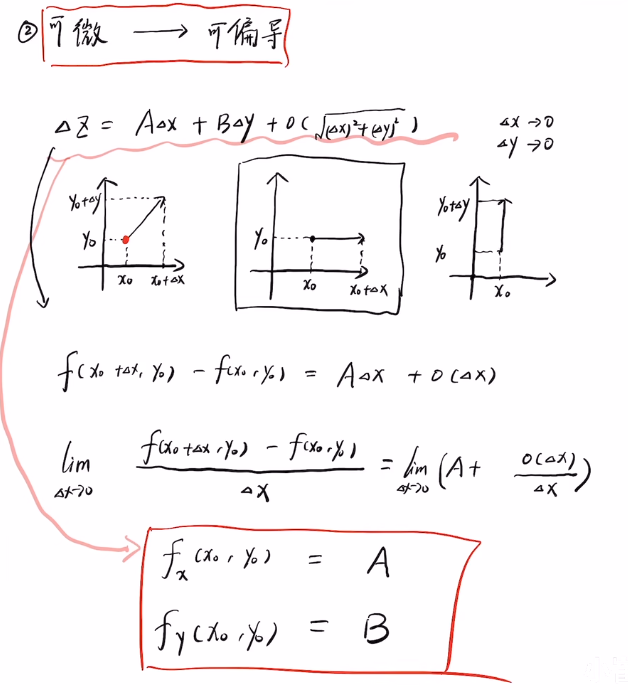 ② 可微 ⟶ 可偏导
ΔZ = AΔx + BΔy + o(√((Δx)²+(Δy)²)) Δx→0
Δy→0
y₀+Δy
y₀
x₀ x₀+Δx
y₀
x₀ x₀+Δx
y₀+Δy
y₀
x₀
f(x₀+Δx, y₀) − f(x₀, y₀) = AΔx + o(Δx)
lim_{Δx→0} (f(x₀+Δx, y₀) − f(x₀, y₀))/Δx = lim_{Δx→0} (A + o(Δx)/Δx)
fₓ(x₀, y₀) = A
f_y(x₀, y₀) = B